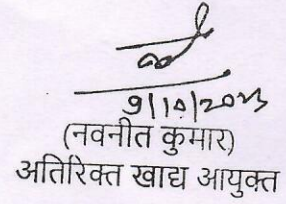 9/10/2023
(नवनीत कुमार)
अतिरिक्त खाद्य आयुक्त